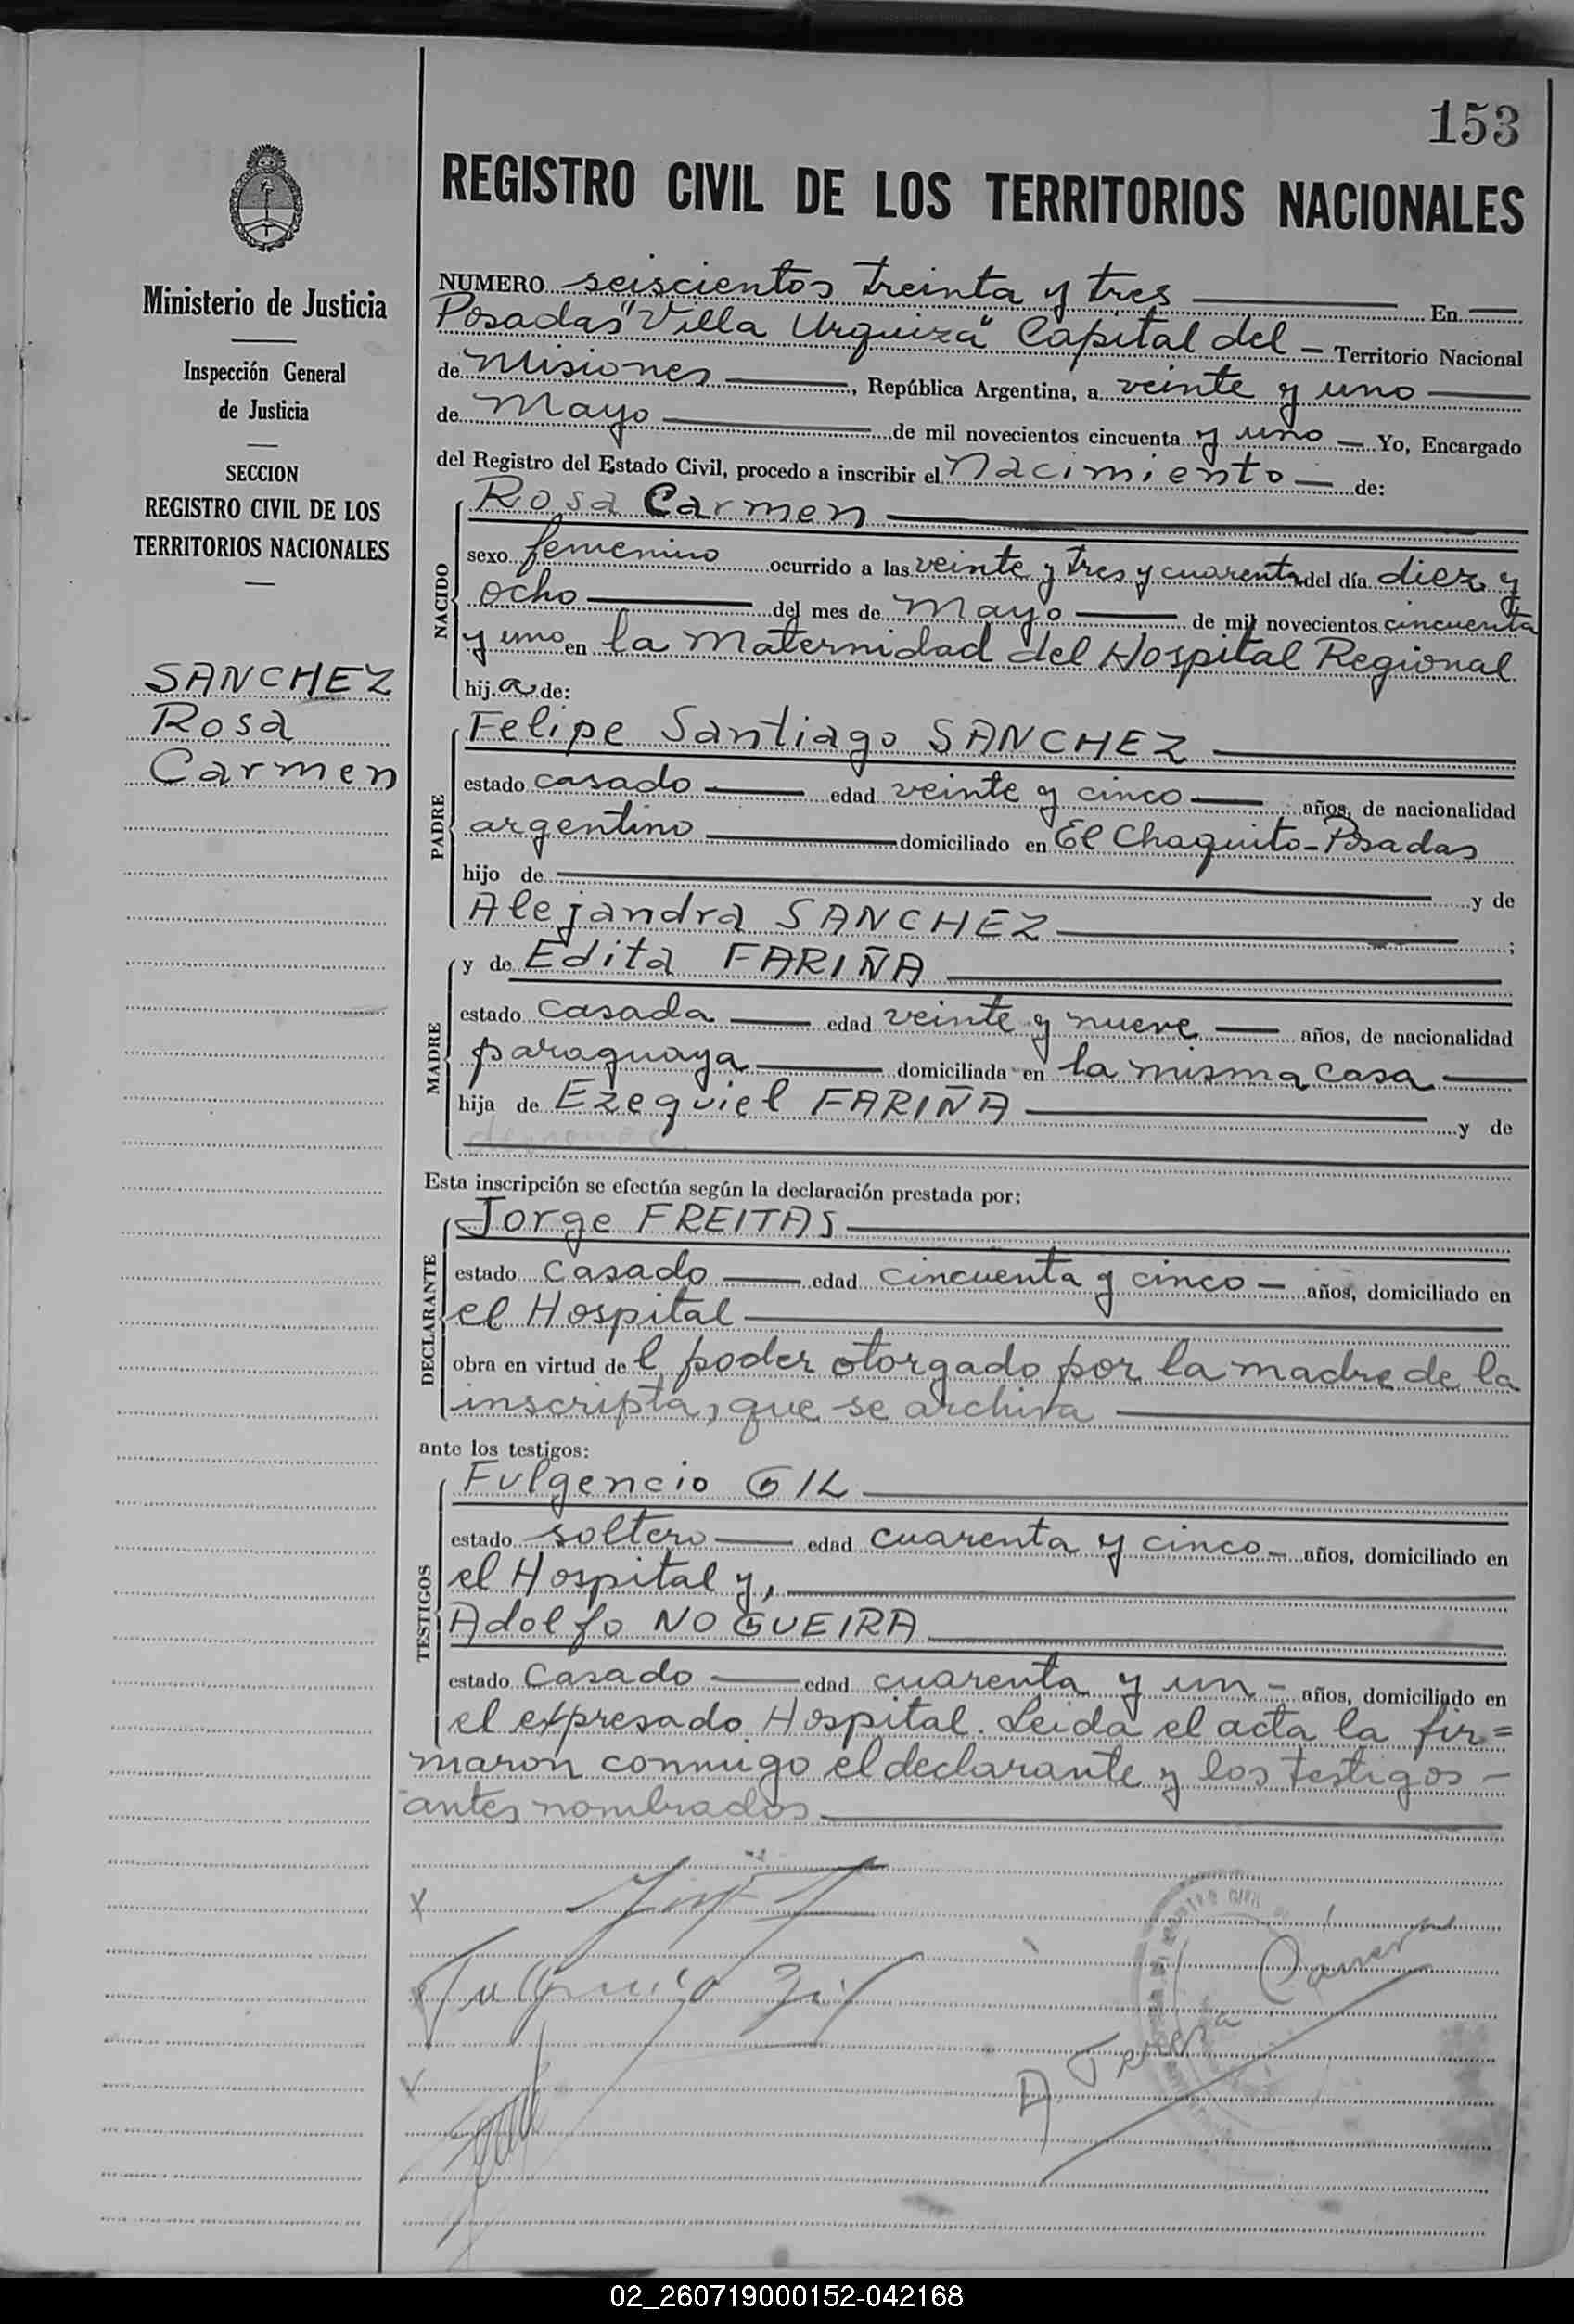 153
REGISTRO CIVIL DE LOS TERRITORIOS NACIONALES
Ministerio de Justicia
Inspección General
de Justicia
SECCION
REGISTRO CIVIL DE LOS
TERRITORIOS NACIONALES
SANCHEZ
Rosa
Carmen
NUMERO seiscientos treinta y tres En
Posadas "Villa Urquiza" Capital del Territorio Nacional
de Misiones, República Argentina, a veinte y uno
de Mayo de mil novecientos cincuenta y uno Yo, Encargado
del Registro del Estado Civil, procedo a inscribir el nacimiento de:
NACIDO
Rosa Carmen
sexo femenino ocurrido a las veinte y tres y cuarenta del día diez y
ocho del mes de Mayo de mil novecientos cincuenta
y uno en la Maternidad del Hospital Regional
hij.a de:
PADRE
Felipe Santiago SANCHEZ
estado casado edad veinte y cinco años, de nacionalidad
argentino domiciliado en El Chaquito-Posadas
hijo de y de
Alejandra SANCHEZ;
MADRE
y de Edita FARIÑA
estado casada edad veinte y nueve años, de nacionalidad
paraguaya domiciliada en la misma casa
hija de Ezequiel FARIÑA y de
Esta inscripción se efectúa según la declaración prestada por:
DECLARANTE
Jorge FREITAS
estado casado edad cincuenta y cinco años, domiciliado en
el Hospital
obra en virtud del poder otorgado por la madre de la
inscripta, que se archiva
ante los testigos:
TESTIGOS
Fulgencio GIL
estado soltero edad cuarenta y cinco años, domiciliado en
el Hospital y,
Adolfo NOGUEIRA
estado casado edad cuarenta y un años, domiciliado en
el expresado Hospital. Leida el acta la fir=
maron conmigo el declarante y los testigos
antes nombrados
Fulgencio Gil
02_260719000152-042168